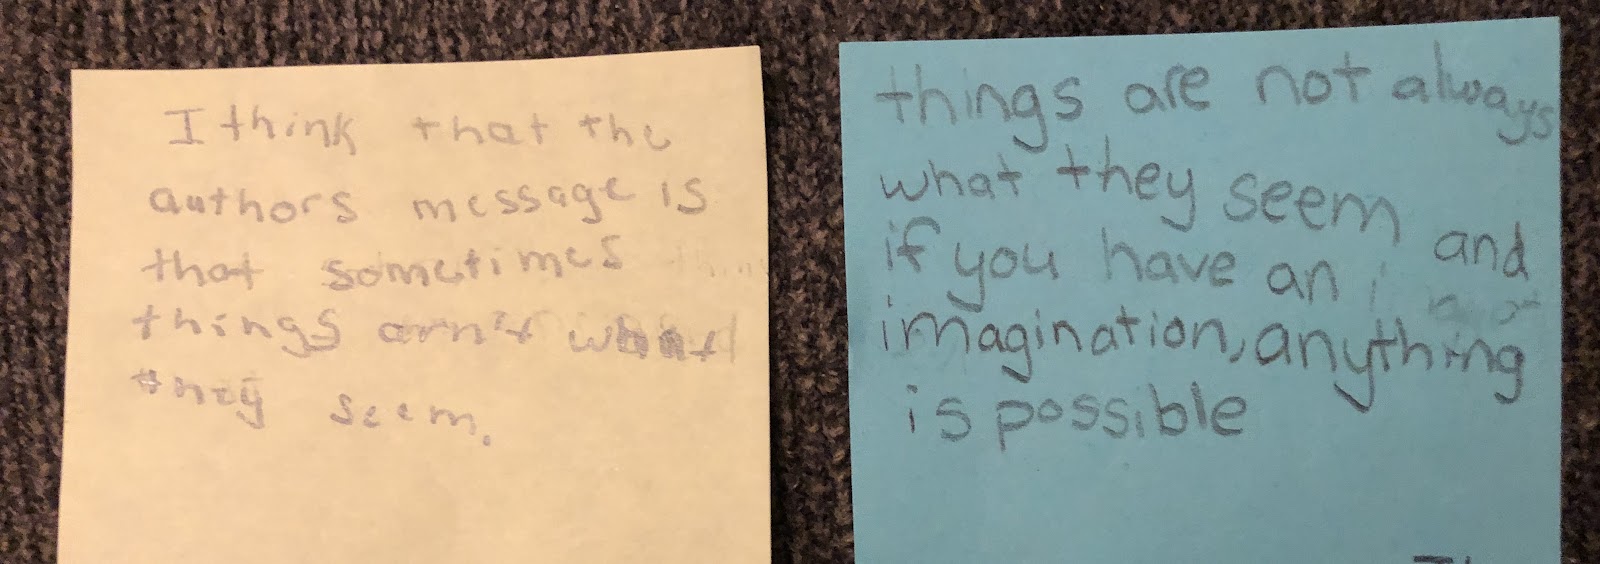 I think that the
authors message is
that sometimes
things arn't what
they seem.
things are not always
what they seem and
if you have an
imagination, anything
is possible